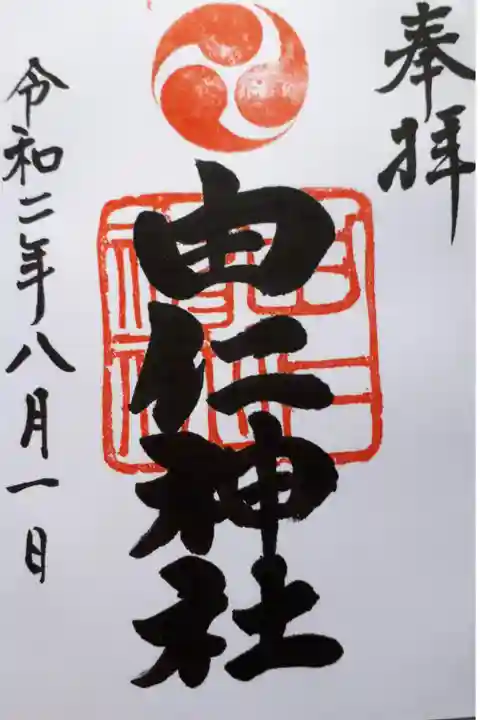 奉拝
由仁神社
令和二年八月一日